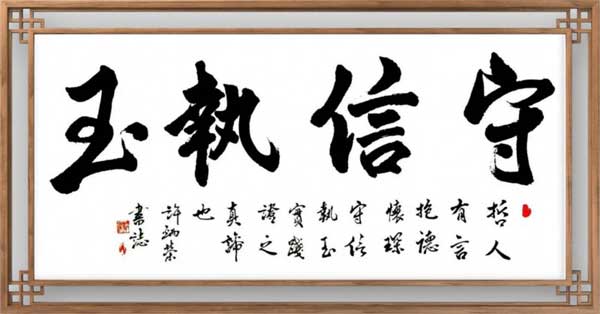 守信執玉
哲人
有言
抱德
懷琛
守信
執玉
實踐
證之
真諦
也
許炳榮
書誌